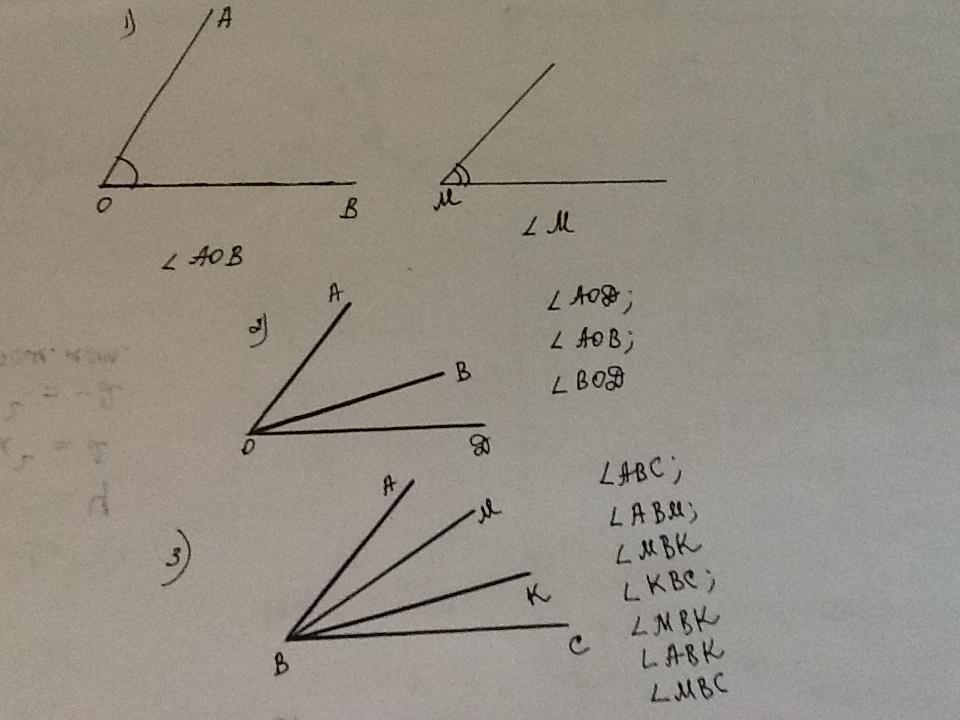 1)
A
O
B
∠ AOB
M
∠ M
2)
A
B
O
Д
∠ AOД;
∠ AOB;
∠ BOД
3)
A
M
K
B
C
∠ABC;
∠ABM;
∠MBK
∠KBC;
∠MBK
∠ABK
∠MBC